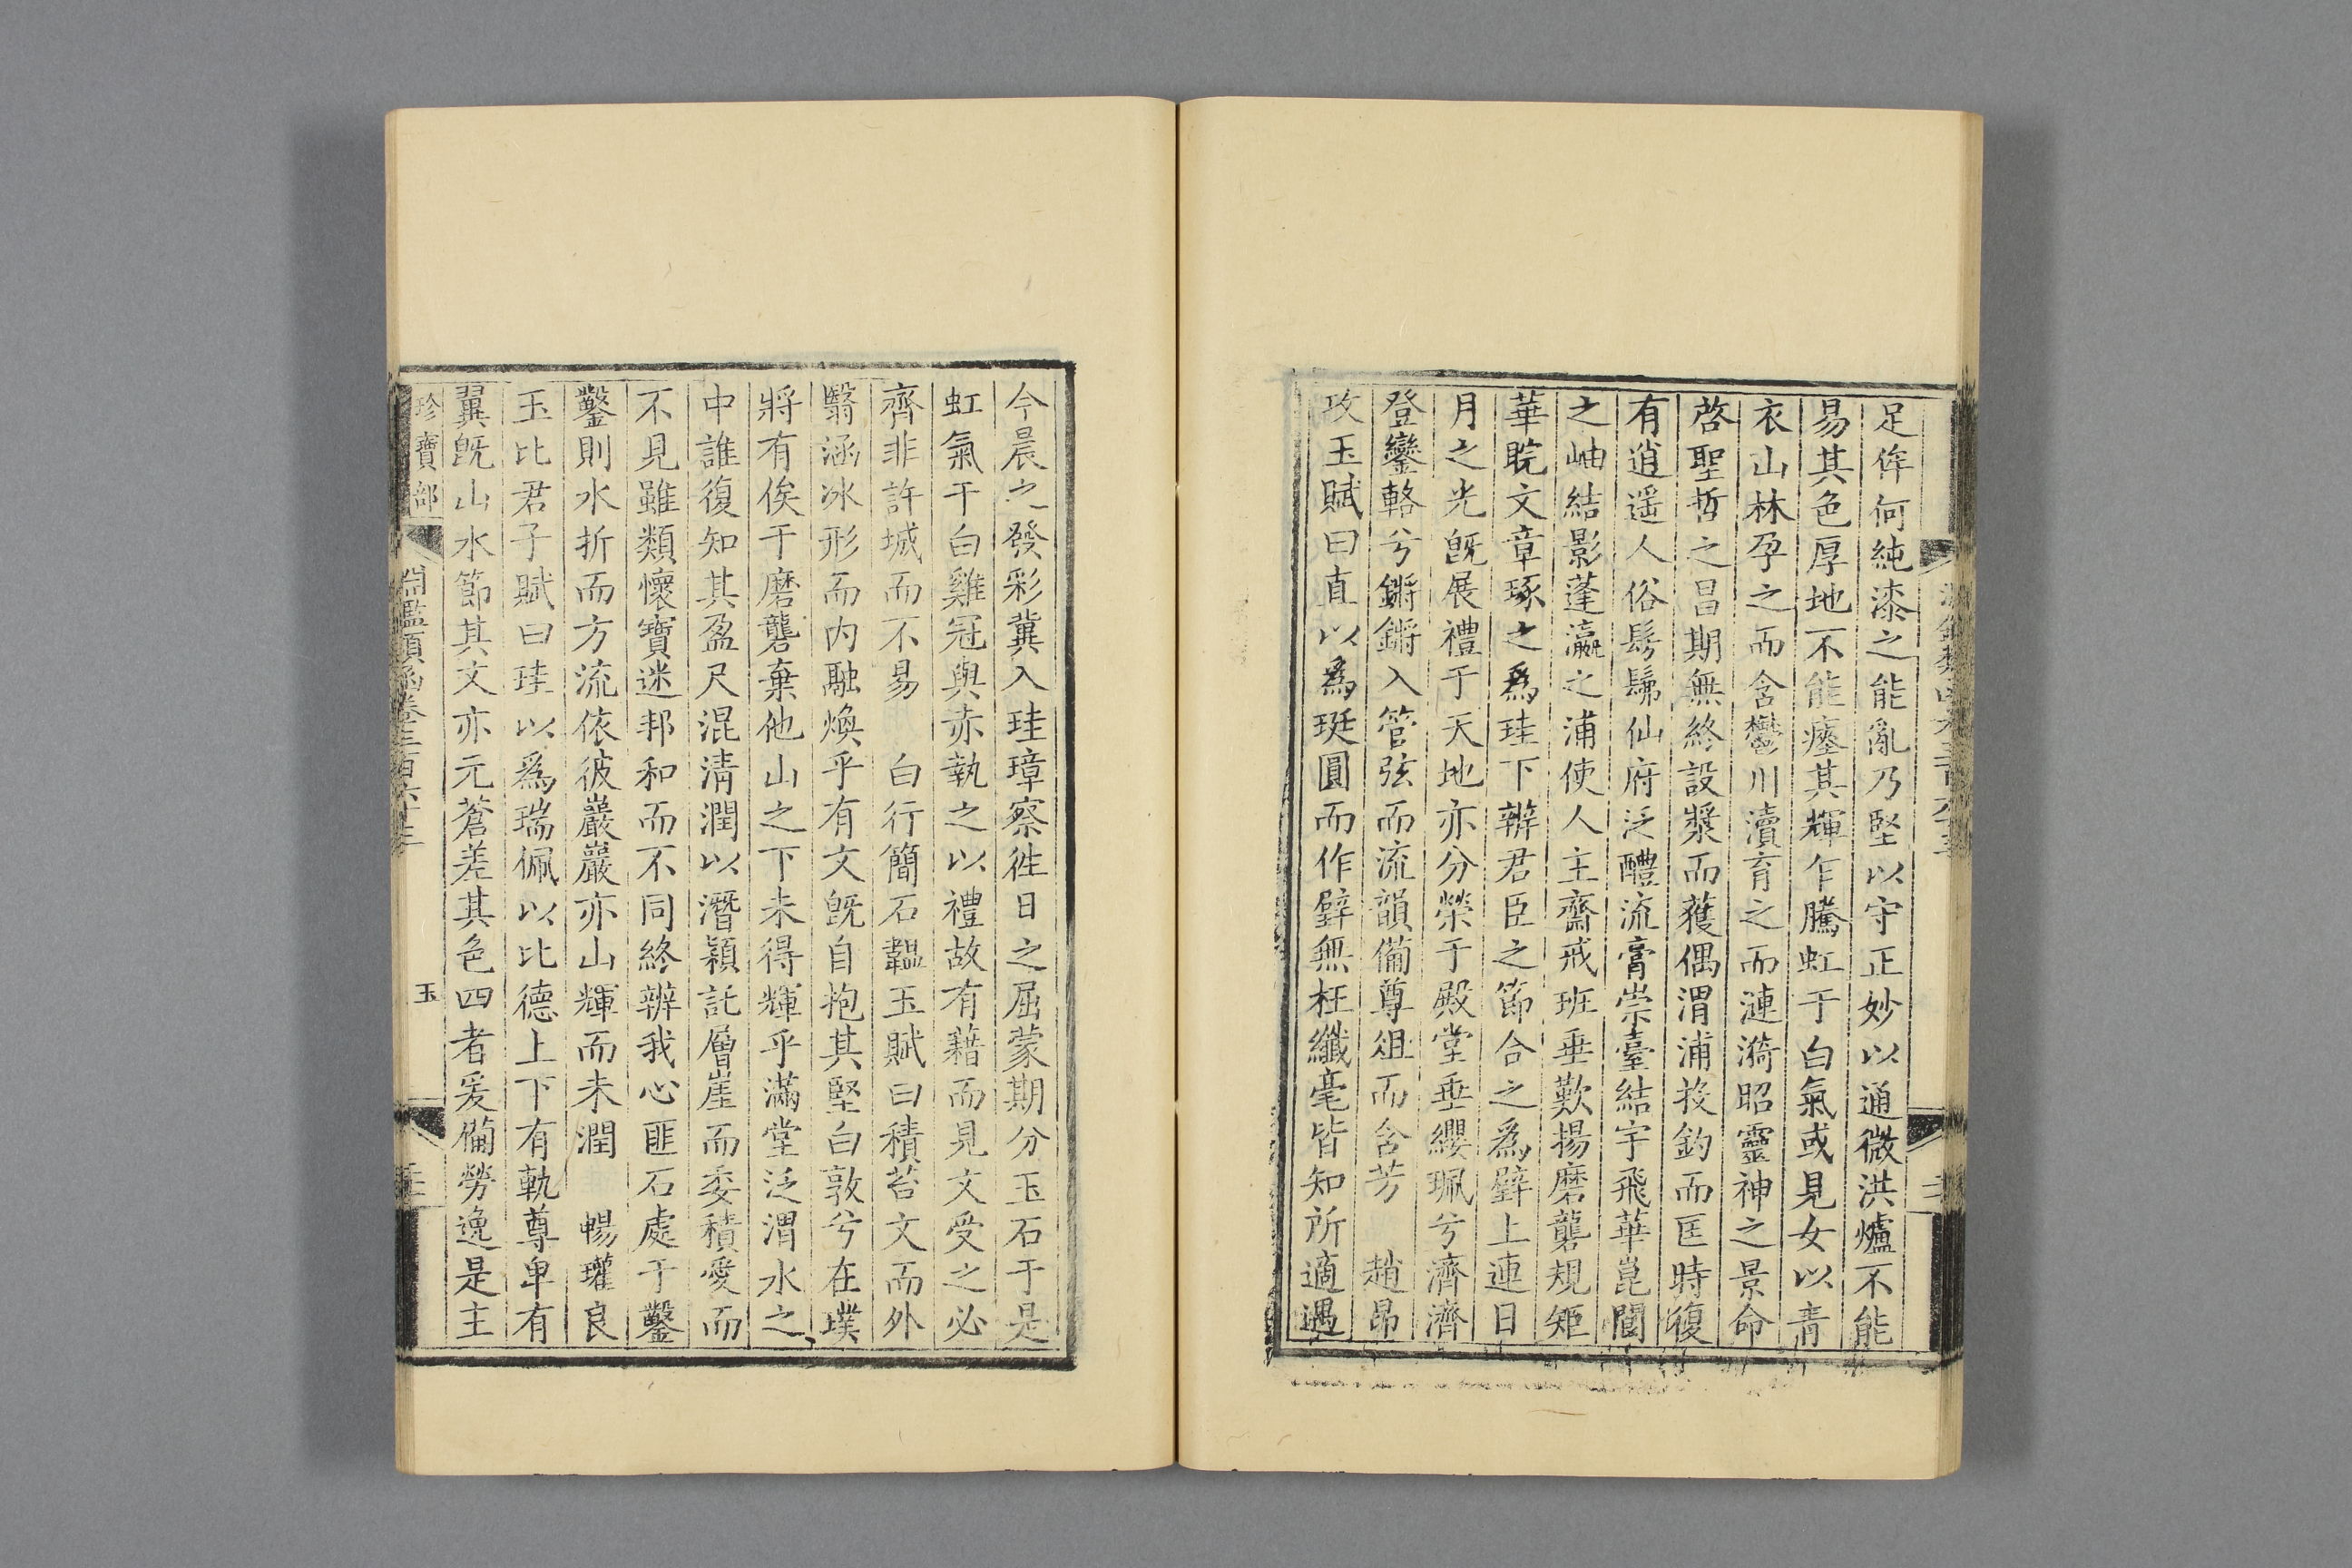 足侔何純漆之能亂乃堅以守正妙以通微洪爐不能
易其色厚地不能瘞其輝乍騰虹于白氣或見女以青
衣山林孕之而含鬱川瀆育之而漣漪昭靈神之景命
啓聖哲之昌期無終設漿而蒦偶渭浦投釣而匡時復
有逍遥人俗髣髴仙府泛醴流膏崇臺結宇飛華崑閬
之岫結影蓬瀛之浦使人主齋戒班垂歎揚磨礱規矩
華睆文章琢之爲珪下辨君臣之節合之爲璧上連日
月之光旣展禮于天地亦分榮于殿堂垂纓珮兮濟濟
登鑾輅兮鏘鏘入管弦而流韻備尊俎而含芳　趙昂
攻玉賦曰直以爲珽圓而作璧無枉纖毫皆知所適遇
今晨之發彩冀入珪璋察徃日之屈蒙期分玉石于是
虹氣干白雞冠與赤執之以禮故有藉而見文受之必
齊非許城而不易　白行簡石韞玉賦曰積苔文而外
翳涵冰形而内融煥乎有文旣自抱其堅白敦兮在璞
將有俟于磨礱棄他山之下未得輝乎滿堂泛渭水之
中誰復知其盈尺混清潤以潛穎託層崖而委積愛而
不見雖類懷寶迷邦和而不同終辨我心匪石處于鑿
鑿則水折而方流依彼巖巖亦山輝而未潤　暢璀良
玉比君子賦曰珪以爲瑞佩以比德上下有軌尊卑有
翼旣山水節其文亦元蒼差其色四者爰備勞逸是主
珍寶部
淵鑑類函卷三百六十三
玉